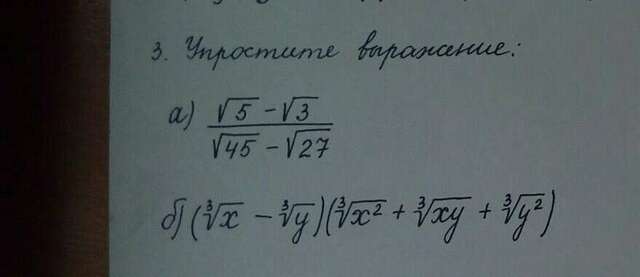 3. Упростите выражение:
а) (√5 − √3) / (√45 − √27)
б) (∛x − ∛y)(∛x² + ∛xy + ∛y²)